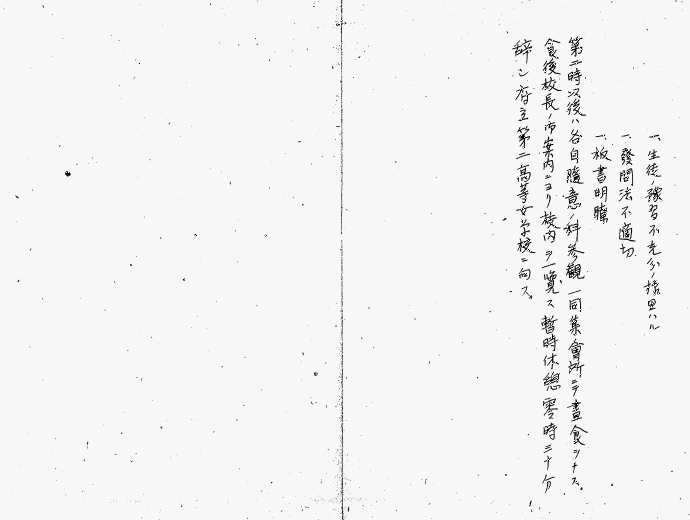 一、生徒ノ豫習不充分ノ様見ハル
一、發問法不適切
一、板書明瞭
第二時以後ハ各自隨意ノ科参観一同集會所ニテ晝食ヲナス。
食後校長ノ御案内ニヨリ校内ヲ一覽ス暫時休憩零時三十分
辞シ府立第二高等女学校ニ向ス。